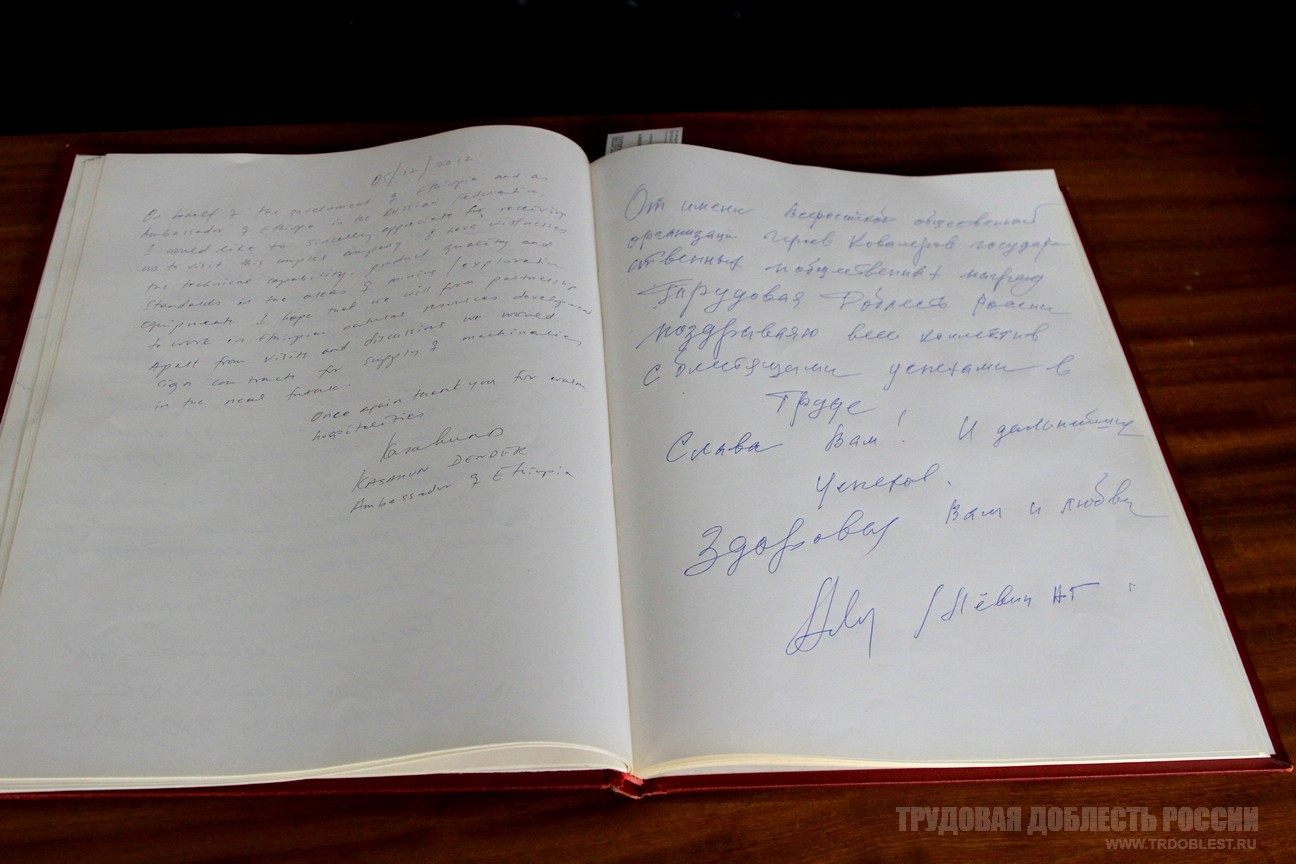 05/12/2012
On behalf of the government of Ethiopia and an
Ambassador of Ethiopia in the Russian Federation.
I would like to sincerely appreciate for receiving
us to visit this complex company. I have witnesses
the technical capability, product quality and
standards in the areas of mining / exploration
equipment. I hope that we will form partnership
to work on Ethiopian natural resources development
Apart from visits and discussions we would
sign contracts for supply of machineries
in the near future.
Once again thank you for
hospitalities
KASAHUN DENDER
Ambassador of Ethiopia
От имени Всероссийской общественной
организаци героев Кавалеров государ
ственных и общественных наград
Трудовая Доблесть России
поздравляю весь коллектив
с блестящими успехами в
труде
Слава Вам! И дальнейших
успехов.
Здоровья Вам и любви
/ Лёвин НГ
ТРУДОВАЯ ДОБЛЕСТЬ РОССИИ
WWW.TRDOBLEST.RU